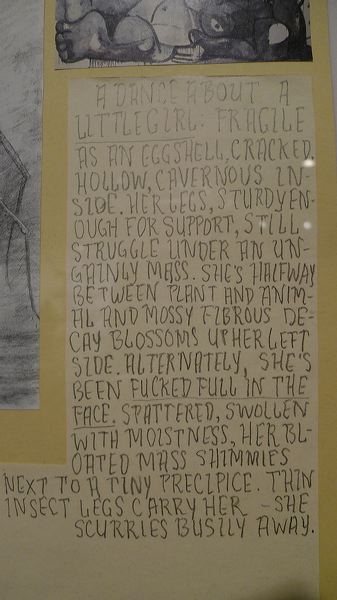 A DANCE ABOUT A
LITTLE GIRL: FRAGILE
AS AN EGGSHELL, CRACKED,
HOLLOW, CAVERNOUS IN-
SIDE. HER LEGS, STURDY EN-
OUGH FOR SUPPORT, STILL
STRUGGLE UNDER AN UN-
GAINLY MASS. SHE'S HALFWAY
BETWEEN PLANT AND ANIM-
AL AND MOSSY FIBROUS DE-
CAY BLOSSOMS UP HER LEFT
SIDE. ALTERNATELY, SHE'S
BEEN FUCKED FULL IN THE
FACE. SPATTERED, SWOLLEN
WITH MOISTNESS, HER BL-
OATED MASS SHIMMIES
NEXT TO A TINY PRECIPICE. THIN
INSECT LEGS CARRY HER - SHE
SCURRIES BUSILY AWAY.